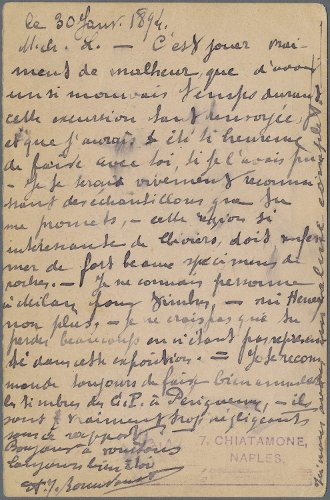 le 30 Janv. 1894.
M. ch. L. — C'est jouer vrai-
ment de malheur, que d'avoir
un si mauvais temps durant
cette excursion tant désirée,
et que j'aurais été si heureux
de faire avec toi, si je l'avais pu
— Je te serai vivement reconnais-
sant des échantillons que tu
me promets, — cette région si
intéressante de
doit renfer-
mer de fort beaux specimens de
roches. — Je ne connais personne
à Milan pour timbres, — ni Henry
non plus, — je ne crois pas que tu
perdes beaucoup en n'étant pas représen-
té dans cette exposition. — Je te recom-
mande toujours de faire bien annuler
les timbres des C.P. à Périgueux, — ils
sont vraiment trop négligents
sous ce rapport.
Bonjour à vous tous
toujours bien à toi
7, CHIATAMONE,
NAPLES.